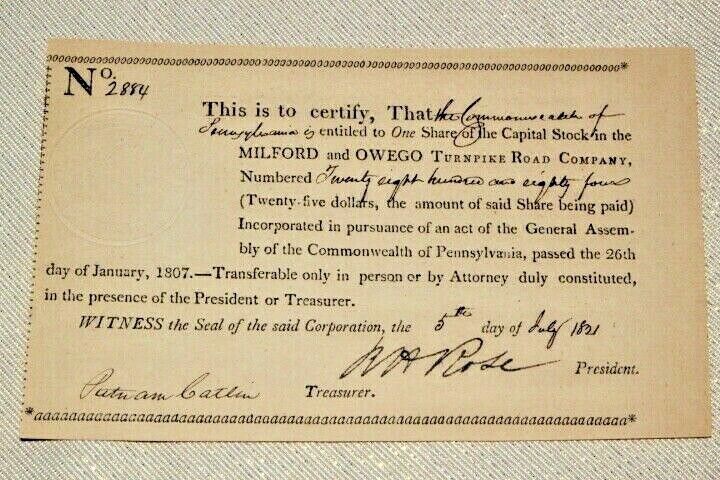 No. 2884
This is to certify, That the Commonwealth of
Pennsylvania is entitled to One Share of the Capital Stock in the
MILFORD and OWEGO TURNPIKE ROAD COMPANY,
Numbered Twenty eight hundred and eighty four
(Twenty-five dollars, the amount of said Share being paid)
Incorporated in pursuance of an act of the General Assem-
bly of the Commonwealth of Pennsylvania, passed the 26th
day of January, 1807.—Transferable only in person or by Attorney duly constituted,
in the presence of the President or Treasurer.
WITNESS the Seal of the said Corporation, the 5th day of July 1821
R H Rose President.
Putnam Catlin Treasurer.